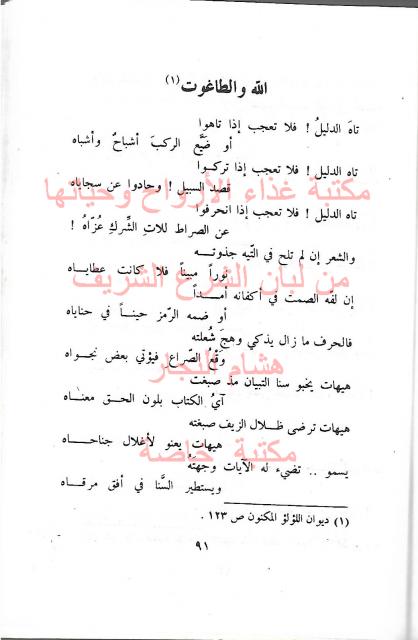 الله والطاغوت (١)
تاهَ الدليلُ ! فلا تعجب إذا تاهوا
أو ضيَّع الركبَ أشباحٌ وأشباه
تاه الدليل ! فلا تعجب إذا تركوا
قصد السبيل ! وحادوا عن سجاياه
مكتبة غذاء الأرواح وحياتها
تاه الدليل ! فلا تعجب إذا انحرفوا
عن الصراط للات الشِّركِ عُزّاهُ !
والشعر إن لم تلح في التّيه جذوتـه
نوراً مبيناً فلا كانت عطاياه
من لبان الشرع الشريف
إن لفّه الصمت في أكفانه أمـداً
أو ضمه الرّمز حيناً في حناياه
فالحرف ما زال يذكي وهجَ شُعلته
وَقْعُ الصِّراع فيؤتي بعض نجواه
هشام النجار
هيهات يخبو سنا التبيان مذ صبغت
آيُ الكتاب بلون الحق معنـاه
هيهات ترضى ظلال الزيف صبغته
هيهات يعنو لأغلال جناحـاه
مكتبة خاصة
يسمو .. تضيء له الآيات وجهتهُ
ويستطير السَّنا في أفق مرقـاه
(١) ديوان اللؤلؤ المكنون ص ١٢٣ .
٩١